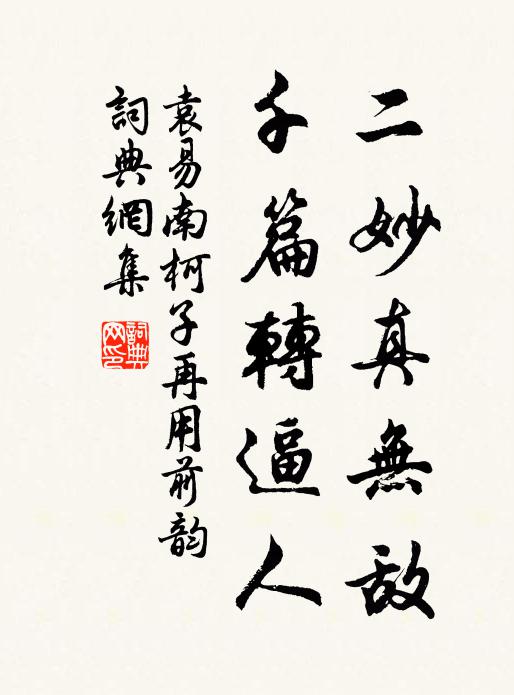 二妙真無敌
千篇轉逼人
袁易南柯子再用前韵
詞典網集
詞典網印